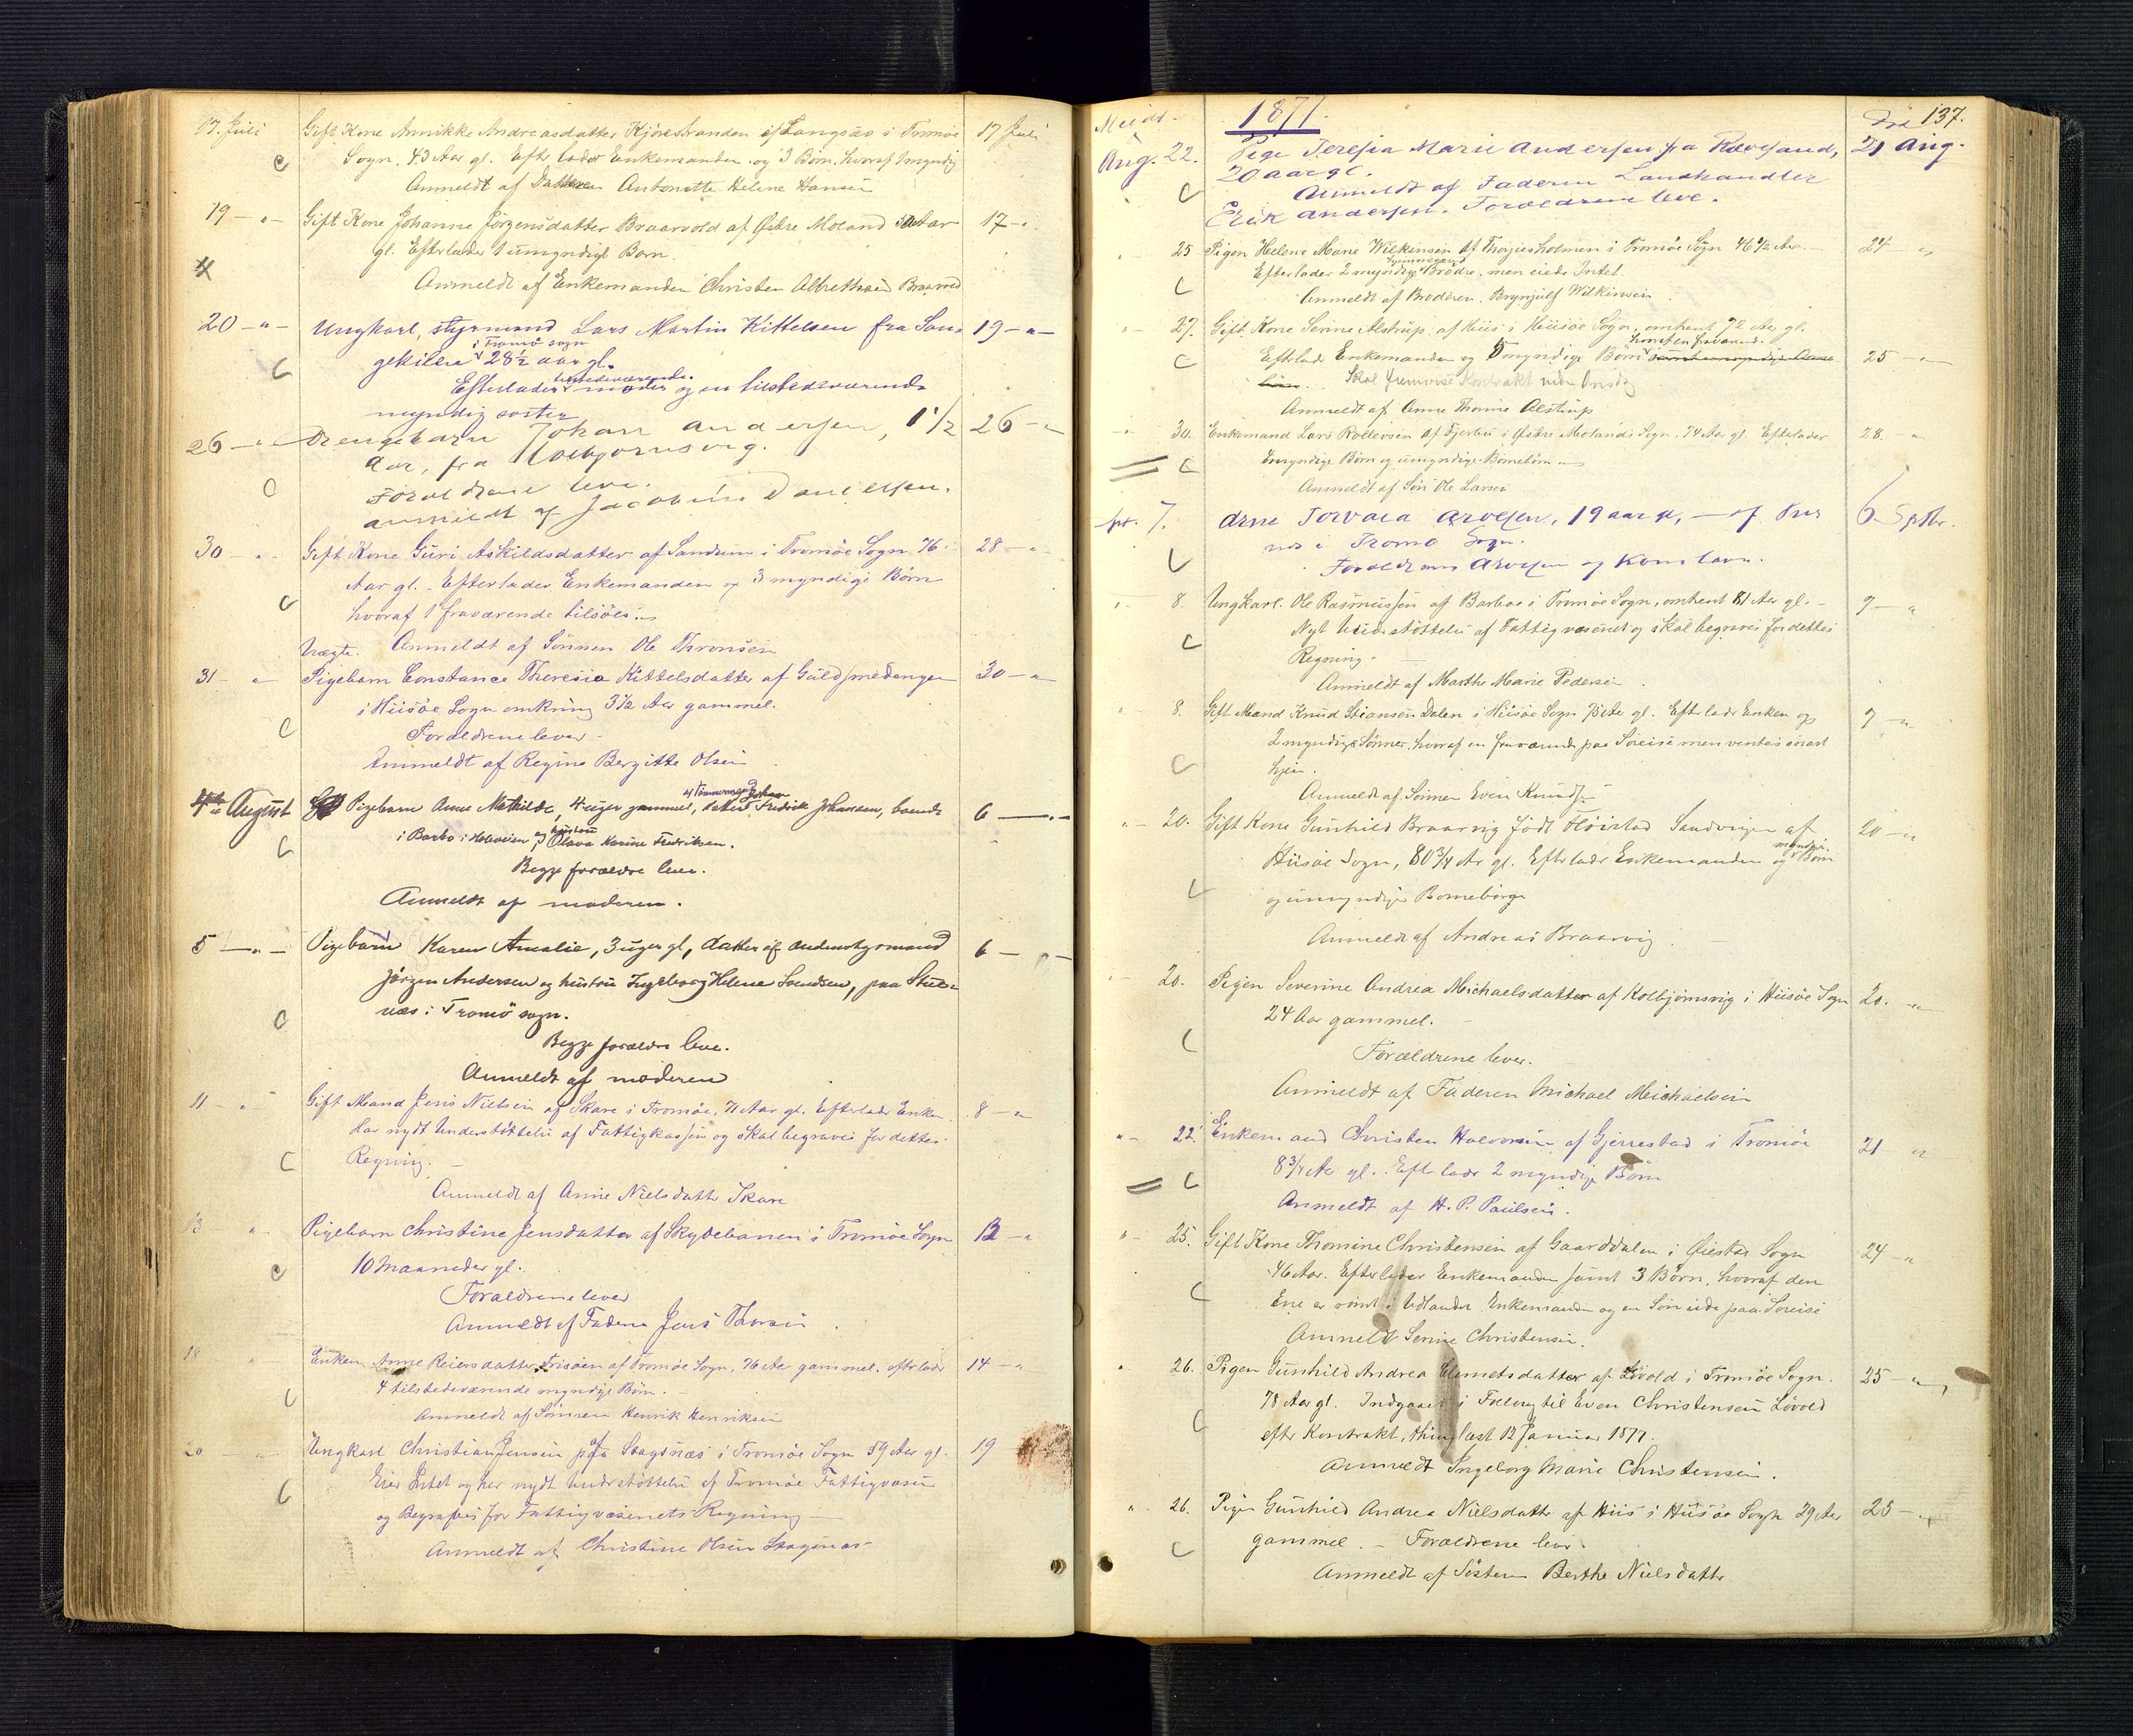 17. Juli Gift Kone Annikke Andreasdatter Kjørestranden af Langsæ i Tromøe 17 Juli
Sogn. 43 Aar gl. Efterlader Enkemanden og 3 Børn, hvoraf 1 myndig
C
Anmeldt af Datteren Antonette Helene Hansen
19 — " — Gift Kone Johanne Jørgensdatter Braarvold af Østre Moland Aar 17 — "
gl. Efterlader 1 umyndigt Barn.
Anmeldt af Enkemanden Christen Albrethsen Braarvold
20 — " — Ungkarl, styrmand Lars Martin Kittelsen fra Son- 19 — " —
i Tromø sogn
gekilen 28½ aar gl.
C
tilstedeværende
Efterlader moder og en tilstedeværende
myndig søster
26 — " Drengebarn Johan Andersen, 1½ 26 — "
Aar, fra Kolbjørnsvig.
C
Forældrene leve.
anmeldt af Jacobine Danielsen.
30 — " Gift Kone Guri Askildsdatter af Sandum i Tromøe Sogn 76 28 — "
Aar gl. Efterlader Enkemanden og 3 myndige Børn
C
hvoraf 1 fraværende tilsøes
Nægte. Anmeldt af Sønnen Ole Thronsen
31 — " Pigebarn Constance Theresia Kittelsdatter af Guldsmedengen 30 — "
i Hiisøe Sogn omkring 3½ Aar gammel.
C
Forældrene lever
Anmeldt af Regine Bergitte Olsen
4de August Pigebarn Anne Mathilde, 4 uger gammel, datter af Tømmermand Johan Fredrik Johansen, boende 6 — " —
i Barbo i Holeveien og hustru Olava Karine Fredriksen.
C
Begge forældre leve.
Anmeldt af moderen.
5 — " — Pigebarn Karen Amalie, 3 uger gl, datter af andenstyrmand 6 — " —
Jørgen Andersen og hustru Ingeborg Helene Svendsen, paa Stue-
næs i Tromø sogn.
C
Begge forældre leve.
Anmeldt af moderen
11 — " Gift Mand Jens Nielsen af Skare i Tromøe, 71 Aar gl. Efterlader Enken 8 — "
Har nydt Understøttelse af Fattigkassen og skal begraves for dettes
C
Regning.
Anmeldt af Anne Nielsdatter Skare
13 — " Pigebarn Christine Jensdatter af Skydebanen i Tromøe Sogn 12 — "
10 Maaneder gl.
C
Forældrene lever
Anmeldt af Faderen Jens Thorsen
18 — " Enken Anne Reiersdatter Frisøen af Tromøe Sogn, 76 Aar gammel. efterlader 14 — "
4 tilstedeværende myndige Børn.
C
Anmeldt af Sønnen Henrik Henriksen
20 — " Ungkarl Christian Jensen paa Skagsnæs i Tromøe Sogn 59 Aar gl. 19
Eier Intet og har nydt Understøttelse af Tromøe Fattigvæsen
C
og Begraves for Fattigvæsenets Regning
Anmeldt af Christine Olsen Skagsnæs
137.
Meldt 1877. Død
Aug. 22. Pige Teresia Marie Andersen fra Rævesand, 21 Aug.
20 aar gl.
C
Anmeldt af Faderen Landhandler
Erik Andersen. Forældrene leve.
" 25. Pigen Helene Marie Wilkensen af Thorjusholmen i Tromøe Sogn 46½ Aar. 24 "
Efterlader 2 myndige Brødre, men eiede Intet.
C
Anmeldt af Broderen. Brynjulf Wilkensen
" 27. Gift Kone Serine Alstrup af Hiis i Hiisøe Sogn, omtrent 72 Aar gl.
hvoraf en fraværende
C
Efterlader Enkemanden og 5 myndige Børn 25 — "
Skal fremvise Kontrakt inden Onsdag
Anmeldt af Anne Thomine Alstrup
" 30. Enkemand Lars Rollevsen af Fjerbu i Østre Molands Sogn. 74 Aar gl. Efterlader 28. "
C
myndige Børn og umyndige Børnebørn
Anmeldt af Søn Ole Larsen
Spt. 7. Arne Torvald Arvesen, 19 aar gl, — af Pus 6 Sptbr.
nes i Tromø Sogn.
C
Forældrene Arvesen og Kone lever.
" 8. Ungkarl. Ole Rasmussen af Barboe i Tromøe Sogn, omtrent 81 Aar gl. 7 — "
Nyt Understøttelse af Fattigvæsenet og skal begraves for dettes
C
Regning.
Anmeldt af Marthe Marie Pedersen
" 8. Gift Mand Knud Stiansen Dalen i Hiisøe Sogn 75 Aar gl. Efterlader Enken og 7 — "
2 myndige Sønner, hvoraf en fraværende paa Søreise men ventes snart
C
hjem.
Anmeldt af Sønnen Even Knudsen
" 20. Gift Kone Gunhild Braarvig født Høistad Sandvigen af 20 — "
myndige
Hiisøe Sogn, 80¾ Ar gl. Efterlader Enkemanden og Børn
C
og umyndige Børnebørn
Anmeldt af Andreas Braarvig
20. Pigen Severine Andrea Michaelsdatter af Kolbjørnsvig i Hiisøe Sogn 20. "
24 Aar gammel.
C
Forældrene lever.
Anmeldt af Faderen Michael Michaelsen
" 22. Enkemand Christen Halvorsen af Gjerrestad i Tromøe 21 "
8¾ Aar gl. Efterlader 2 myndige Børn
C
Anmeldt af H. P. Paulsen.
" 25. Gift Kone Thomine Christensen af Gaarddalen i Øiestad Sogn 24 — "
46 Aar. Efterlader Enkemanden samt 3 Børn, hvoraf den
C
Ene er rømt i Udlandet. Enkemanden og en Søn ude paa Søreise
Anmeldt Serine Christensen
" 26. Pigen Gunhild Andrea Clemetsdatter af Løvold i Tromøe Sogn. 25 — "
78 Aar gl. Indgaaet i Follog til Even Christensen Løvold
C
efter Kontrakt, thinglæst 12 Januar 1877.
Anmeldt Ingeborg Marie Christensen.
" 26. Pigen Gunhild Andrea Nielsdatter af Hiis i Hiisøe Sogn 29 Aar 25 — "
gammel. — Forældrene lever
C
Anmeldt af Søsteren Berthe Nielsdatter